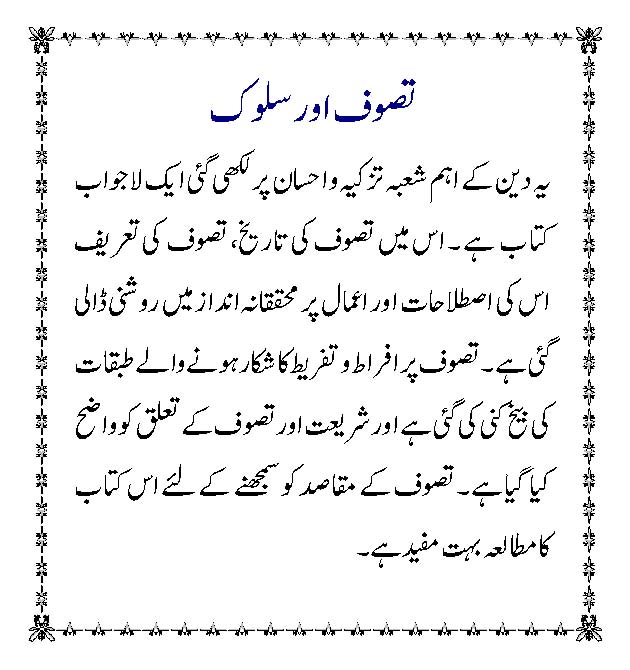 تصوف اور سلوک
یہ دین کے اہم شعبہ تزکیہ و احسان پر لکھی گئی ایک لاجواب
کتاب ہے۔ اس میں تصوف کی تاریخ، تصوف کی تعریف
اس کی اصطلاحات اور اعمال پر محققانہ انداز میں روشنی ڈالی
گئی ہے۔ تصوف پر افراط و تفریط کا شکار ہونے والے طبقات
کی بیخ کنی کی گئی ہے اور شریعت اور تصوف کے تعلق کو واضح
کیا گیا ہے۔ تصوف کے مقاصد کو سمجھنے کے لئے اس کتاب
کا مطالعہ بہت مفید ہے۔